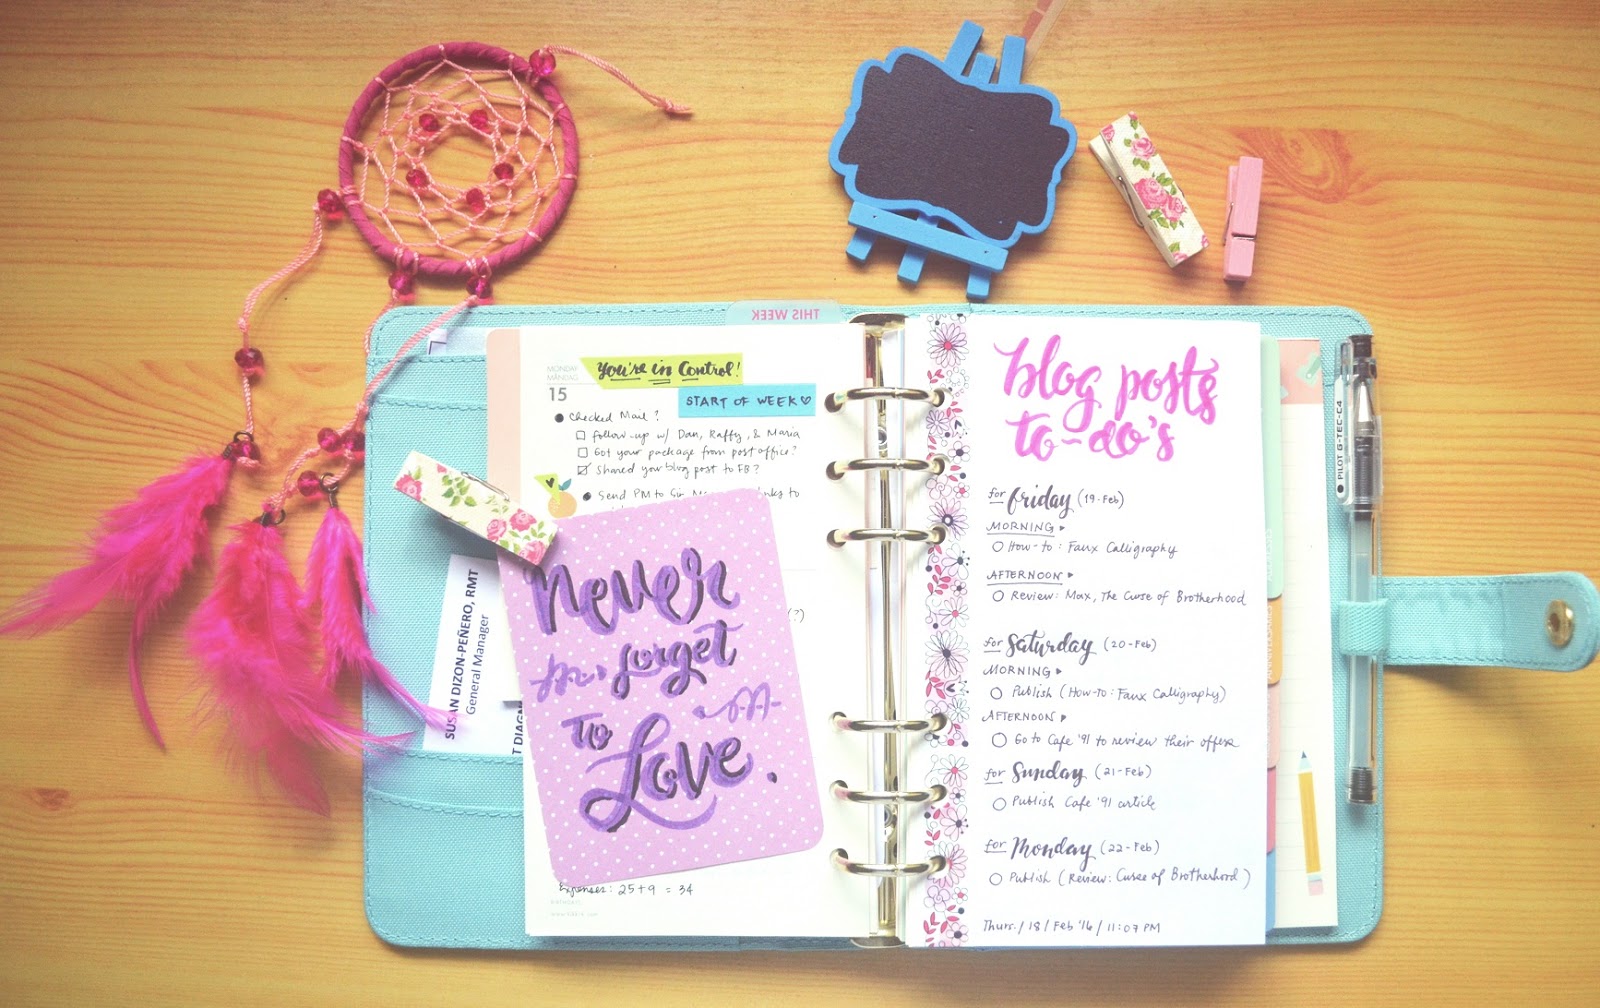 THIS WEEK
MONDAY
MÅNDAG
15
You're in Control!
START OF WEEK
Checked Mail?
follow-up w/ Dan, Raffy, & Maria
Got your package from post office?
Shared your blog post to FB?
Send PM to Sir
to
(?)
Never
forget
to
Love.
Expenses: 25+9 = 34
SUSAN DIZON-PEÑERO, RMT
General Manager
T DIAGN
blog posts
to-do's
for Friday (19-Feb)
MORNING
How-to: Faux Calligraphy
AFTERNOON
Review: Max, The Curse of Brotherhood
for Saturday (20-Feb)
MORNING
Publish (How-to: Faux Calligraphy)
AFTERNOON
Go to Cafe '91 to review their offers
for Sunday (21-Feb)
Publish Cafe '91 article
for Monday (22-Feb)
Publish (Review: Curse of Brotherhood)
Thurs./18/Feb '16/11:07 PM
PILOT G-TEC-C4